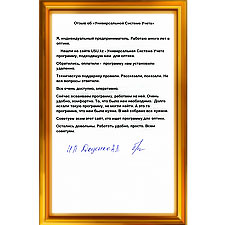 Отзыв об «Универсальной Системе Учета»
Я, индивидуальный предприниматель. Работаю много лет в
оптике.
Нашли на сайте USU.kz «Универсальная Система Учета
программу, подходящую нам для оптики.
Обратились, оплатили - программу нам установили
удаленно.
Техническую поддержку провели. Рассказали, показали. На
все вопросы ответили.
Все очень доступно, оперативно.
Сейчас осваиваем программу, работаем на ней. Очень
удобно, комфортно. То, что было нам необходимо. Долго
искали такую программу, не могли найти. А это та
программа, что нам была нужна. В ней собрана вся нужная.
Советуем всем этот сайт, кто ищет программу для оптики.
Остались довольны. Работать удобно, просто. Всем
советуем.
ИП